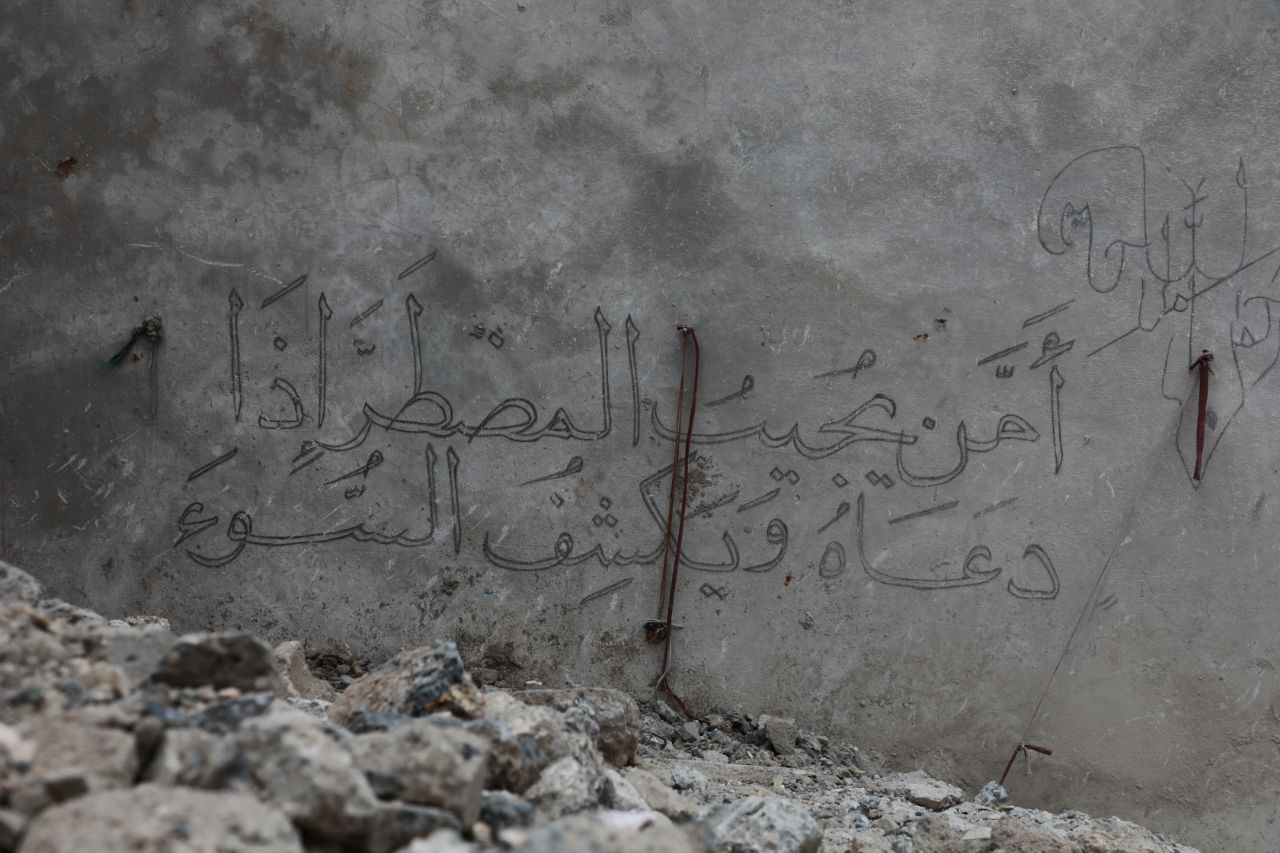 أَمَّن يُجِيبُ المُضْطَرَّ إِذَا
دَعَاهُ وَيَكْشِفُ السُّوءَ